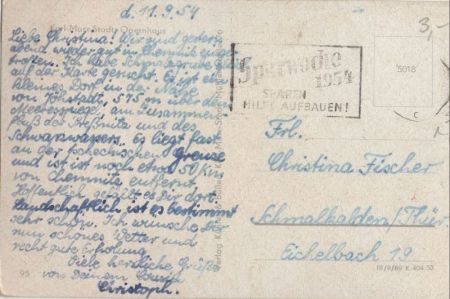 d. 11.9.54
Karl-Marx-Stadt, Opernhaus
Liebe Christina! Wir sind gestern
abend wieder gut in Chemnitz einge-
troffen. Ich habe Schmalzgrube gleich
auf der Karte gesucht. Es ist ein
kleines Dorf in der Nähe
von Jöhstadt, 575 m über dem
Meeresspiegel, am Zusammen-
fluß der Preßnitz und des
Schwarzwassers. Es liegt fast
an der tschechischen Grenze
und ist noch etwa 50 km
von Chemnitz entfernt.
Hoffentlich gefällt es Dir dort.
Landschaftlich ist es bestimmt
sehr schön. Ich wünsche Dir
nun schönes Wetter und
recht gute Erholung.
Viele herzliche Grüße
von Deinem Cousin
Christoph.
95
Sparwoche
1954
SPAREN
HILFT AUFBAUEN!
5018
3,-
C
Frl.
Christina Fischer
Schmalkalden/Thür.
Eichelbach 19
III/9/69 K. 404 53